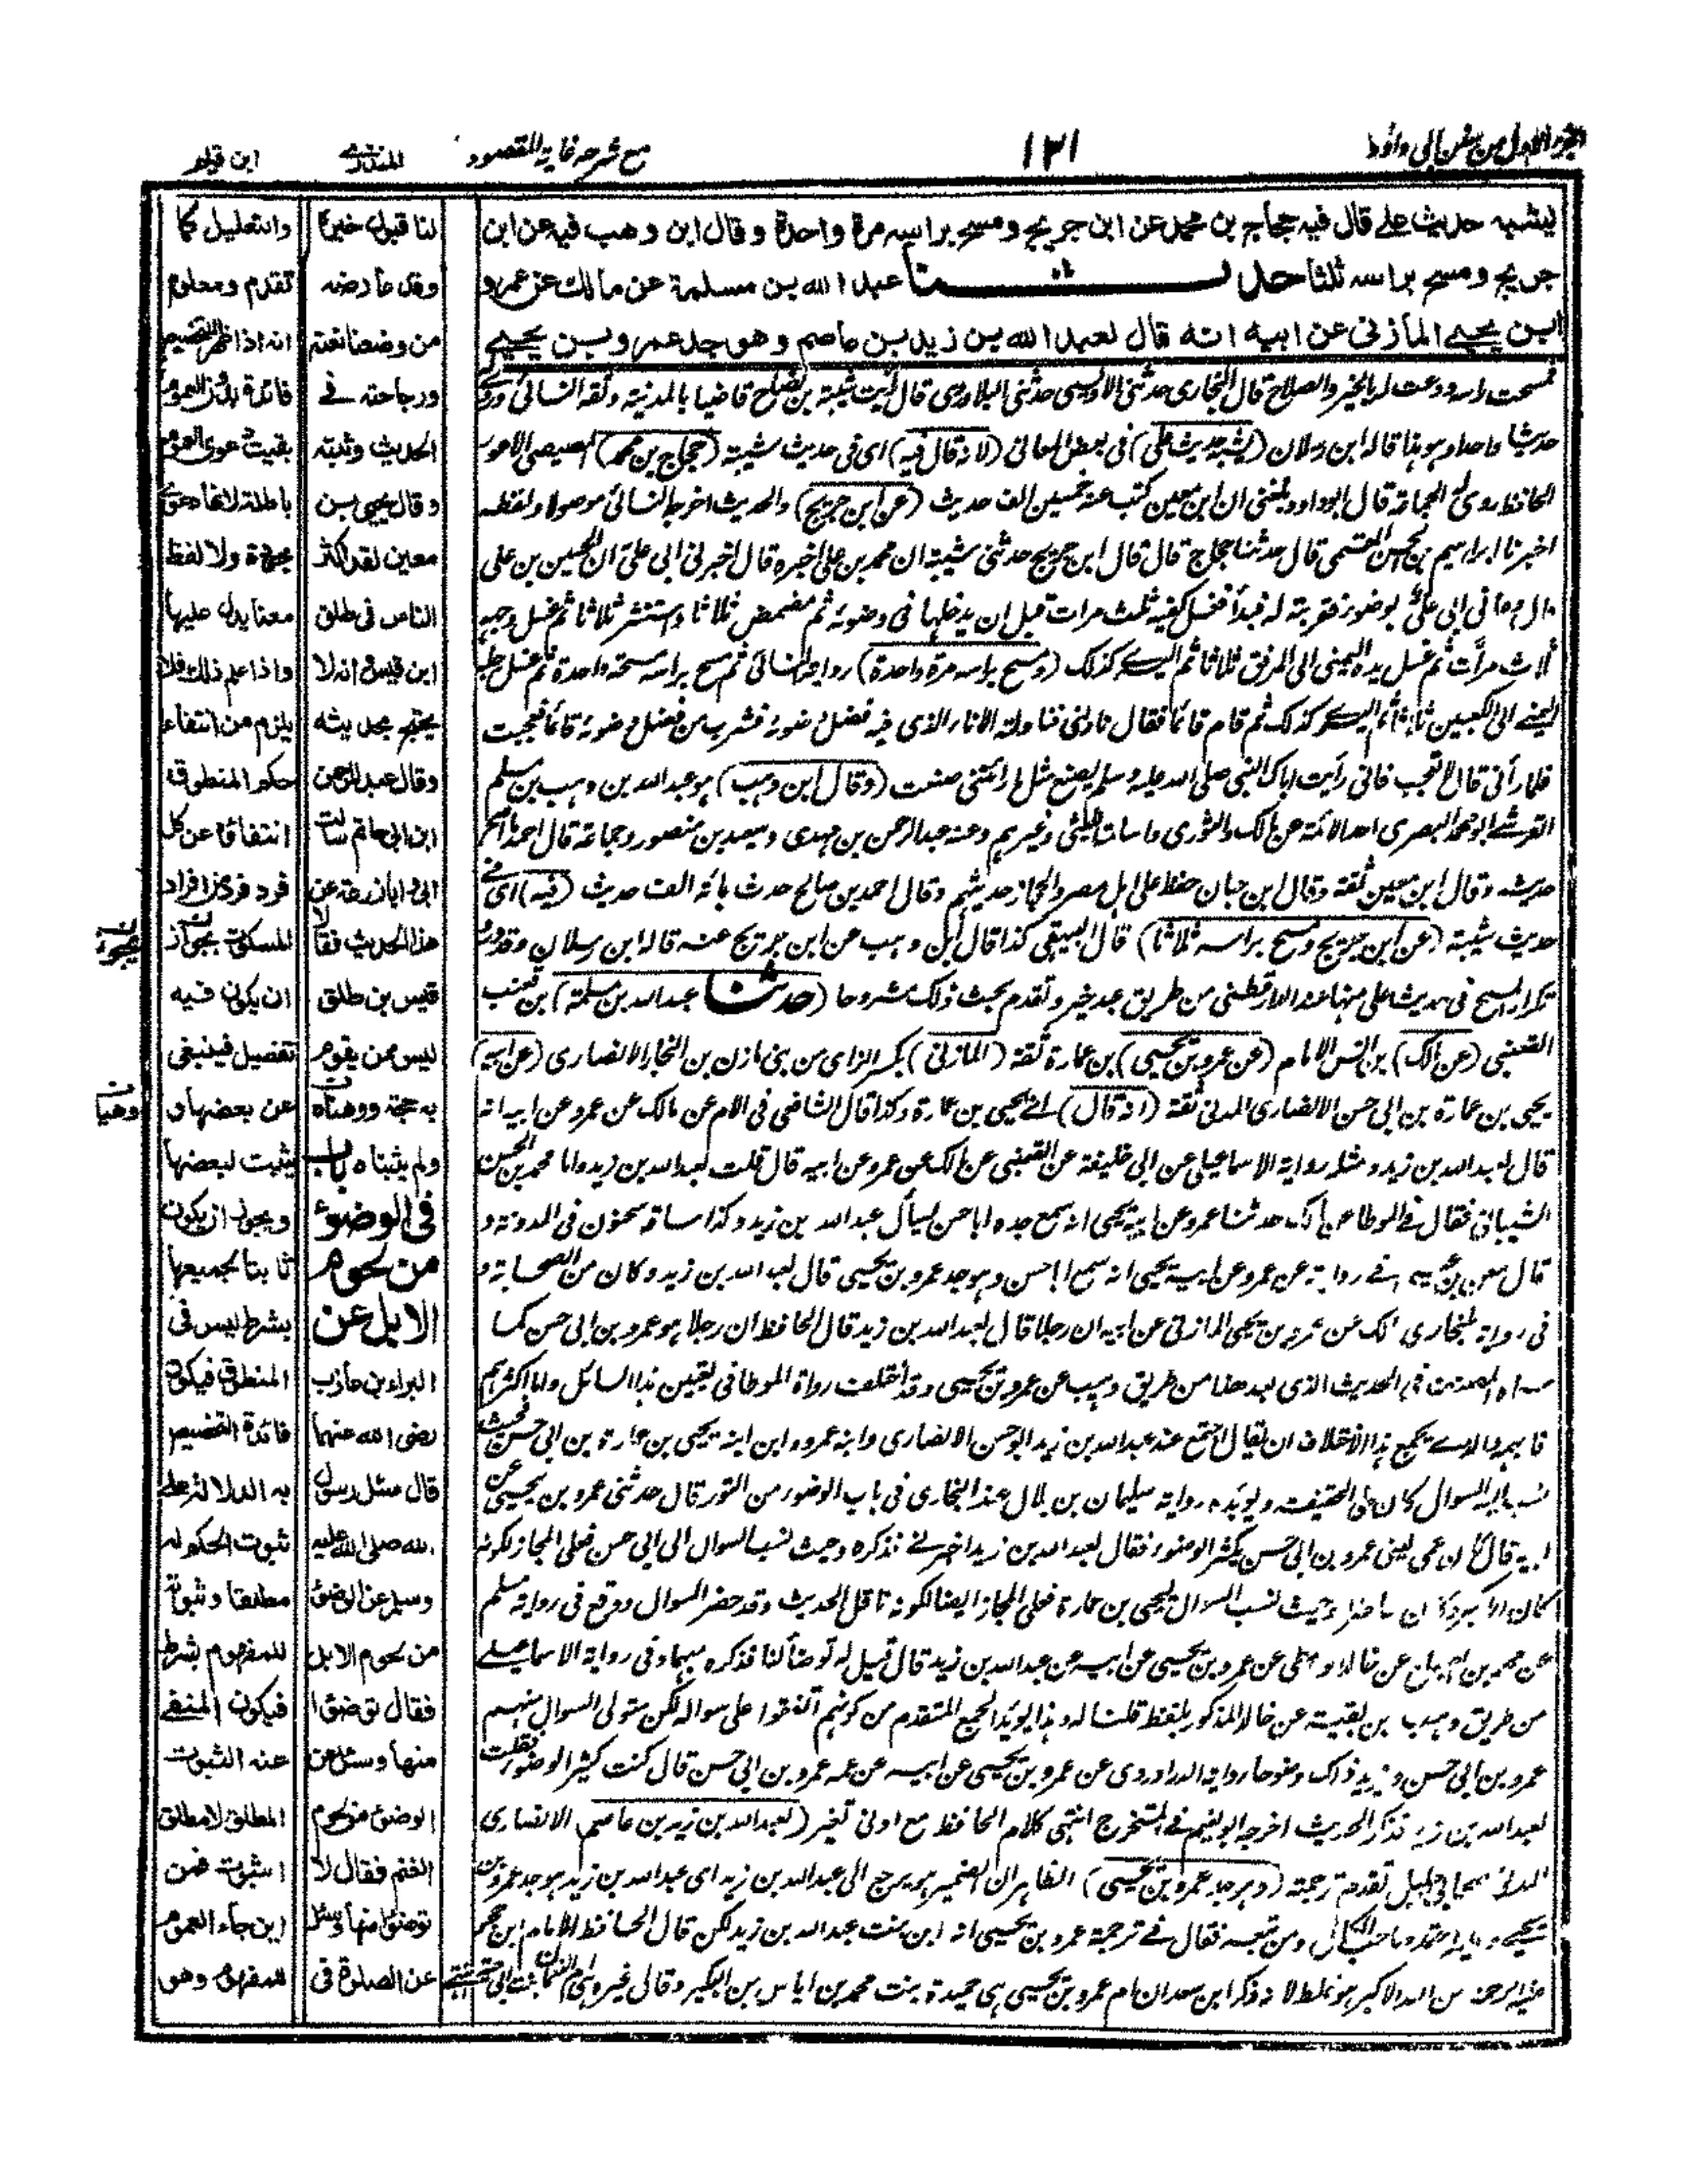 الجزء الاول من سنن ابى داؤد
١٣١
مع شرحه غاية المقصود
المنذرى
ابن قيم
ليشبه حديث على قال فيه حجاج بن محمد عن ابن جريج ومسح براسه مرة واحدة وقال ابن وهب فيه عن ابن
جريج ومسح براسه ثلثا حدثنا عبد الله بن مسلمة عن مالك عن عمرو
ابن يحيى المازنى عن ابيه انه قال لعبد الله بن زيد بن عاصم وهو جد عمرو بن يحيى
فمسحت راسه ودعت له بالخير والصلاح قال البخارى حدثنى الاويسى حدثنى الدراوردى قال رأيت شيبة بن نصاح قاضيا بالمدينة وثقه النسائى وروى
حديثا واحدا وهو هذا قاله ابن رسلان (يشبه حديث على) فى بعض المعانى (لانه قال فيه) اى فى حديث شيبة (حجاج بن محمد) المصيصى الاعور
الحافظ روى له الجماعة قال ابوداود بلغنى ان ابن معين كتب عنه خمسين الف حديث (عن ابن جريج) والحديث اخرجه النسائى موصولا ولفظه
اخبرنا ابراهيم بن الحسن المقسمى قال حدثنا حجاج قال قال ابن جريج حدثنى شيبة ان محمد بن على اخبره قال اخبرنى ابى على ان الحسين بن على
قال دعانى ابى على بوضوء فقربته له فبدأ فغسل كفيه ثلث مرات قبل ان يدخلها فى وضوئه ثم مضمض ثلاثا واستنثر ثلاثا ثم غسل وجهه
ثلاث مرات ثم غسل يده اليمنى الى المرفق ثلاثا ثم اليسرى كذلك (ومسح براسه مرة واحدة) رواية النسائى ثم مسح براسه مسحة واحدة ثم غسل رجله
اليمنى الى الكعبين ثلاثا ثم اليسرى كذلك ثم قام قائما فقال ناولنى فناولته الاناء الذى فيه فضل وضوئه فشرب من فضل وضوئه قائما فعجبت
فلما رآنى قال لا تعجب فانى رأيت اباك النبى صلى الله عليه وسلم يصنع مثل ما رأيتنى صنعت (وقال ابن وهب) هو عبد الله بن وهب بن مسلم
القرشى ابو محمد البصرى احد الائمة عن مالك والثورى واسامة الليثى وغيرهم وعنه عبد الرحمن بن مهدى وسعيد بن منصور وجماعة قال احمد ما اصح
حديثه وقال ابن معين ثقة وقال ابن حبان حفظ على اهل مصر والحجاز حديثهم وقال احمد بن صالح حدث بمائة الف حديث (فيه) اى فى
حديث شيبة (عن ابن جريج ومسح براسه ثلاثا) قال البيهقى كذا قال ابن وهب عن ابن جريج عنه قاله ابن رسلان وقد ورد
تكرار المسح فى حديث على منها عند الدارقطنى من طريق عبد خير وتقدم بحث ذلك مشروحا (حدثنا عبد الله بن مسلمة) بن قعنب
القعنبى (عن مالك) بن انس الامام (عن عمرو بن يحيى) بن عمارة ثقة (المازنى) بكسر الزاى من بنى مازن بن النجار الانصارى (عن ابيه)
يحيى بن عمارة بن ابى حسن الانصارى المدنى ثقة (انه قال) اى يحيى بن عمارة وكذا قال الشافعى فى الام عن مالك عن عمرو عن ابيه انه
قال لعبد الله بن زيد ومثله رواية الاسماعيلى عن ابى خليفة عن القعنبى عن مالك عن عمرو عن ابيه قال قلت لعبد الله بن زيد واما محمد بن الحسن
الشيبانى فقال فى الموطا عن مالك حدثنا عمرو عن ابيه يحيى انه سمع جده ابا حسن يسأل عبد الله بن زيد وكذا ساقه سحنون فى المدونة و
قال معن بن عيسى فى روايته عن عمرو عن ابيه يحيى انه سمع ابا حسن وهو جد عمرو بن يحيى قال لعبد الله بن زيد وكان من الصحابة و
فى رواية للبخارى مالك عن عمرو بن يحيى المازنى عن ابيه ان رجلا قال لعبد الله بن زيد قال الحافظ ان رجلا هو عمرو بن ابى حسن كما
سماه المصنف فى الحديث الذى بعد هذا من طريق وهيب عن عمرو بن يحيى وقد اختلف رواة الموطا فى تعيين هذا السائل واما اكثرهم
فابهمه والذى يجمع هذا الاختلاف ان يقال اجتمع عند عبد الله بن زيد ابو حسن الانصارى وابنه عمرو وابن ابنه يحيى بن عمارة بن ابى حسن فحيث
نسب اليه السوال كان على الحقيقة ويؤيده رواية سليمان بن بلال عند البخارى فى باب الوضوء من التور قال حدثنى عمرو بن يحيى عن
ابيه قال كان عمى يعنى عمرو بن ابى حسن يكثر الوضوء فقال لعبد الله بن زيد اخبرنى فذكره وحيث نسب السوال الى ابى حسن فعلى المجاز لكونه
كان الاكبر وكان حاضرا وحيث نسب السوال ليحيى بن عمارة فعلى المجاز ايضا لكونه ناقل الحديث وقد حضر السوال ووقع فى رواية مسلم
عن محمد بن الصباح عن خالد الواسطى عن عمرو بن يحيى عن ابيه عن عبد الله بن زيد قال قيل له توضأ لنا فذكره مبهما وفى رواية الاسماعيلى
من طريق وهب بن بقية عن خالد المذكور بلفظ قلنا له وهذا يؤيد الجمع المتقدم من كونهم اتفقوا على سواله لكن متولى السوال منهم
عمرو بن ابى حسن ويزيد ذلك وضوحا رواية الدراوردى عن عمرو بن يحيى عن ابيه عن عمه عمرو بن ابى حسن قال كنت كثير الوضوء فقلت
لعبد الله بن زيد فذكر الحديث اخرجه ابو نعيم فى المستخرج انتهى كلام الحافظ مع ادنى تغير (لعبد الله بن زيد بن عاصم) الانصارى
المدنى صحابى جليل تقدم ترجمته (وهو جد عمرو بن يحيى) الظاهر ان الضمير هو يرجع الى عبد الله بن زيد اى عبد الله بن زيد هو جد عمرو بن
يحيى وعليه اعتمد صاحب الكمال ومن تبعه فقال فى ترجمة عمرو بن يحيى انه ابن بنت عبد الله بن زيد لكن قال الحافظ الامام ابن حجر
هو غلط لانه ذكر ابن سعد ان ام عمرو بن يحيى هى حميدة بنت محمد بن اياس بن البكير وقال غيره هى ام النعمان بنت ابى حية
لنا قبول خبره
وقد عارضه
من وضعنا نعته
ورجاحته فى
الحديث وثبته
وقال يحيى بن
معين لقد اكثر
الناس فى طلق
ابن قيس انه لا
يحتج بحديثه
وقال عبد الرحمن
ابن ابى حاتم سالت
ابى وابا زرعة عن
هذا الحديث فقالا
قيس بن طلق
ليس ممن يقوم
به حجة ووهناه
ولم يثبتاه باب
فى الوضوء
من لحوم
الابل عن
البراء بن عازب
رضى الله عنهما
قال سئل رسول
الله صلى الله عليه
وسلم عن الوضوء
من لحوم الابل
فقال توضئوا
منها وسئل عن
الوضوء من لحوم
الغنم فقال لا
توضئوا منها وسئل
عن الصلوة فى
والتعليل كما
تقدم ومعلوم
انه اذا ظهر للتخصيص
فائدة بدون العموم
بقيت دعوى العموم
باطلة لانها دعوى
مجردة ولا لفظ
معنا يدل عليها
واذا علم ذلك فلا
يلزم من انتفاء
حكم المنطوق
انتفاؤه عن كل
فرد فرد من افراد
المسكوت بجواز
ان يكون فيه
تفصيل فينبغى
عن بعضها و
يثبت لبعضها
ويجوز ان يكون
ثابتا لجميعها
بشرط ليس فى
المنطوق فيكون
فائدة التخصيص
به الدلالة على
ثبوت الحكم له
مطلقا وثبوته
للمفهوم بشرط
فيكون المنفى
عنه الثبوت
المطلق لا مطلق
الثبوت فمن
اين جاء العموم
للمفهوم وهو